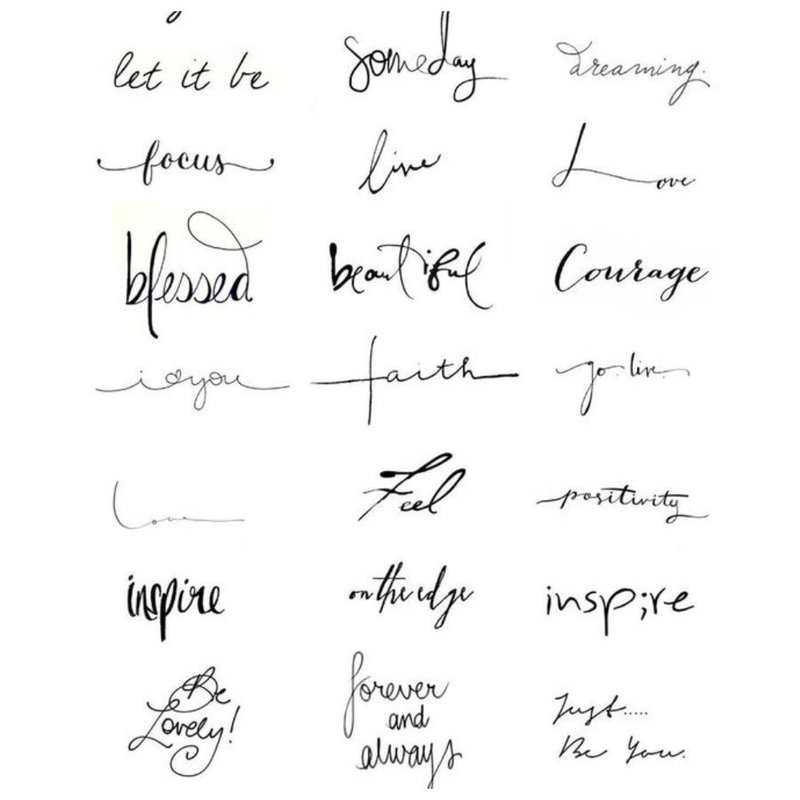 let it be
someday
dreaming.
focus
live
Love
blessed
beautiful
Courage
i you
faith
go. live.
Love
Feel
positivity
inspire
on the edge
insp;re
Be
Lovely!
forever
and
always
Just.....
Be You.